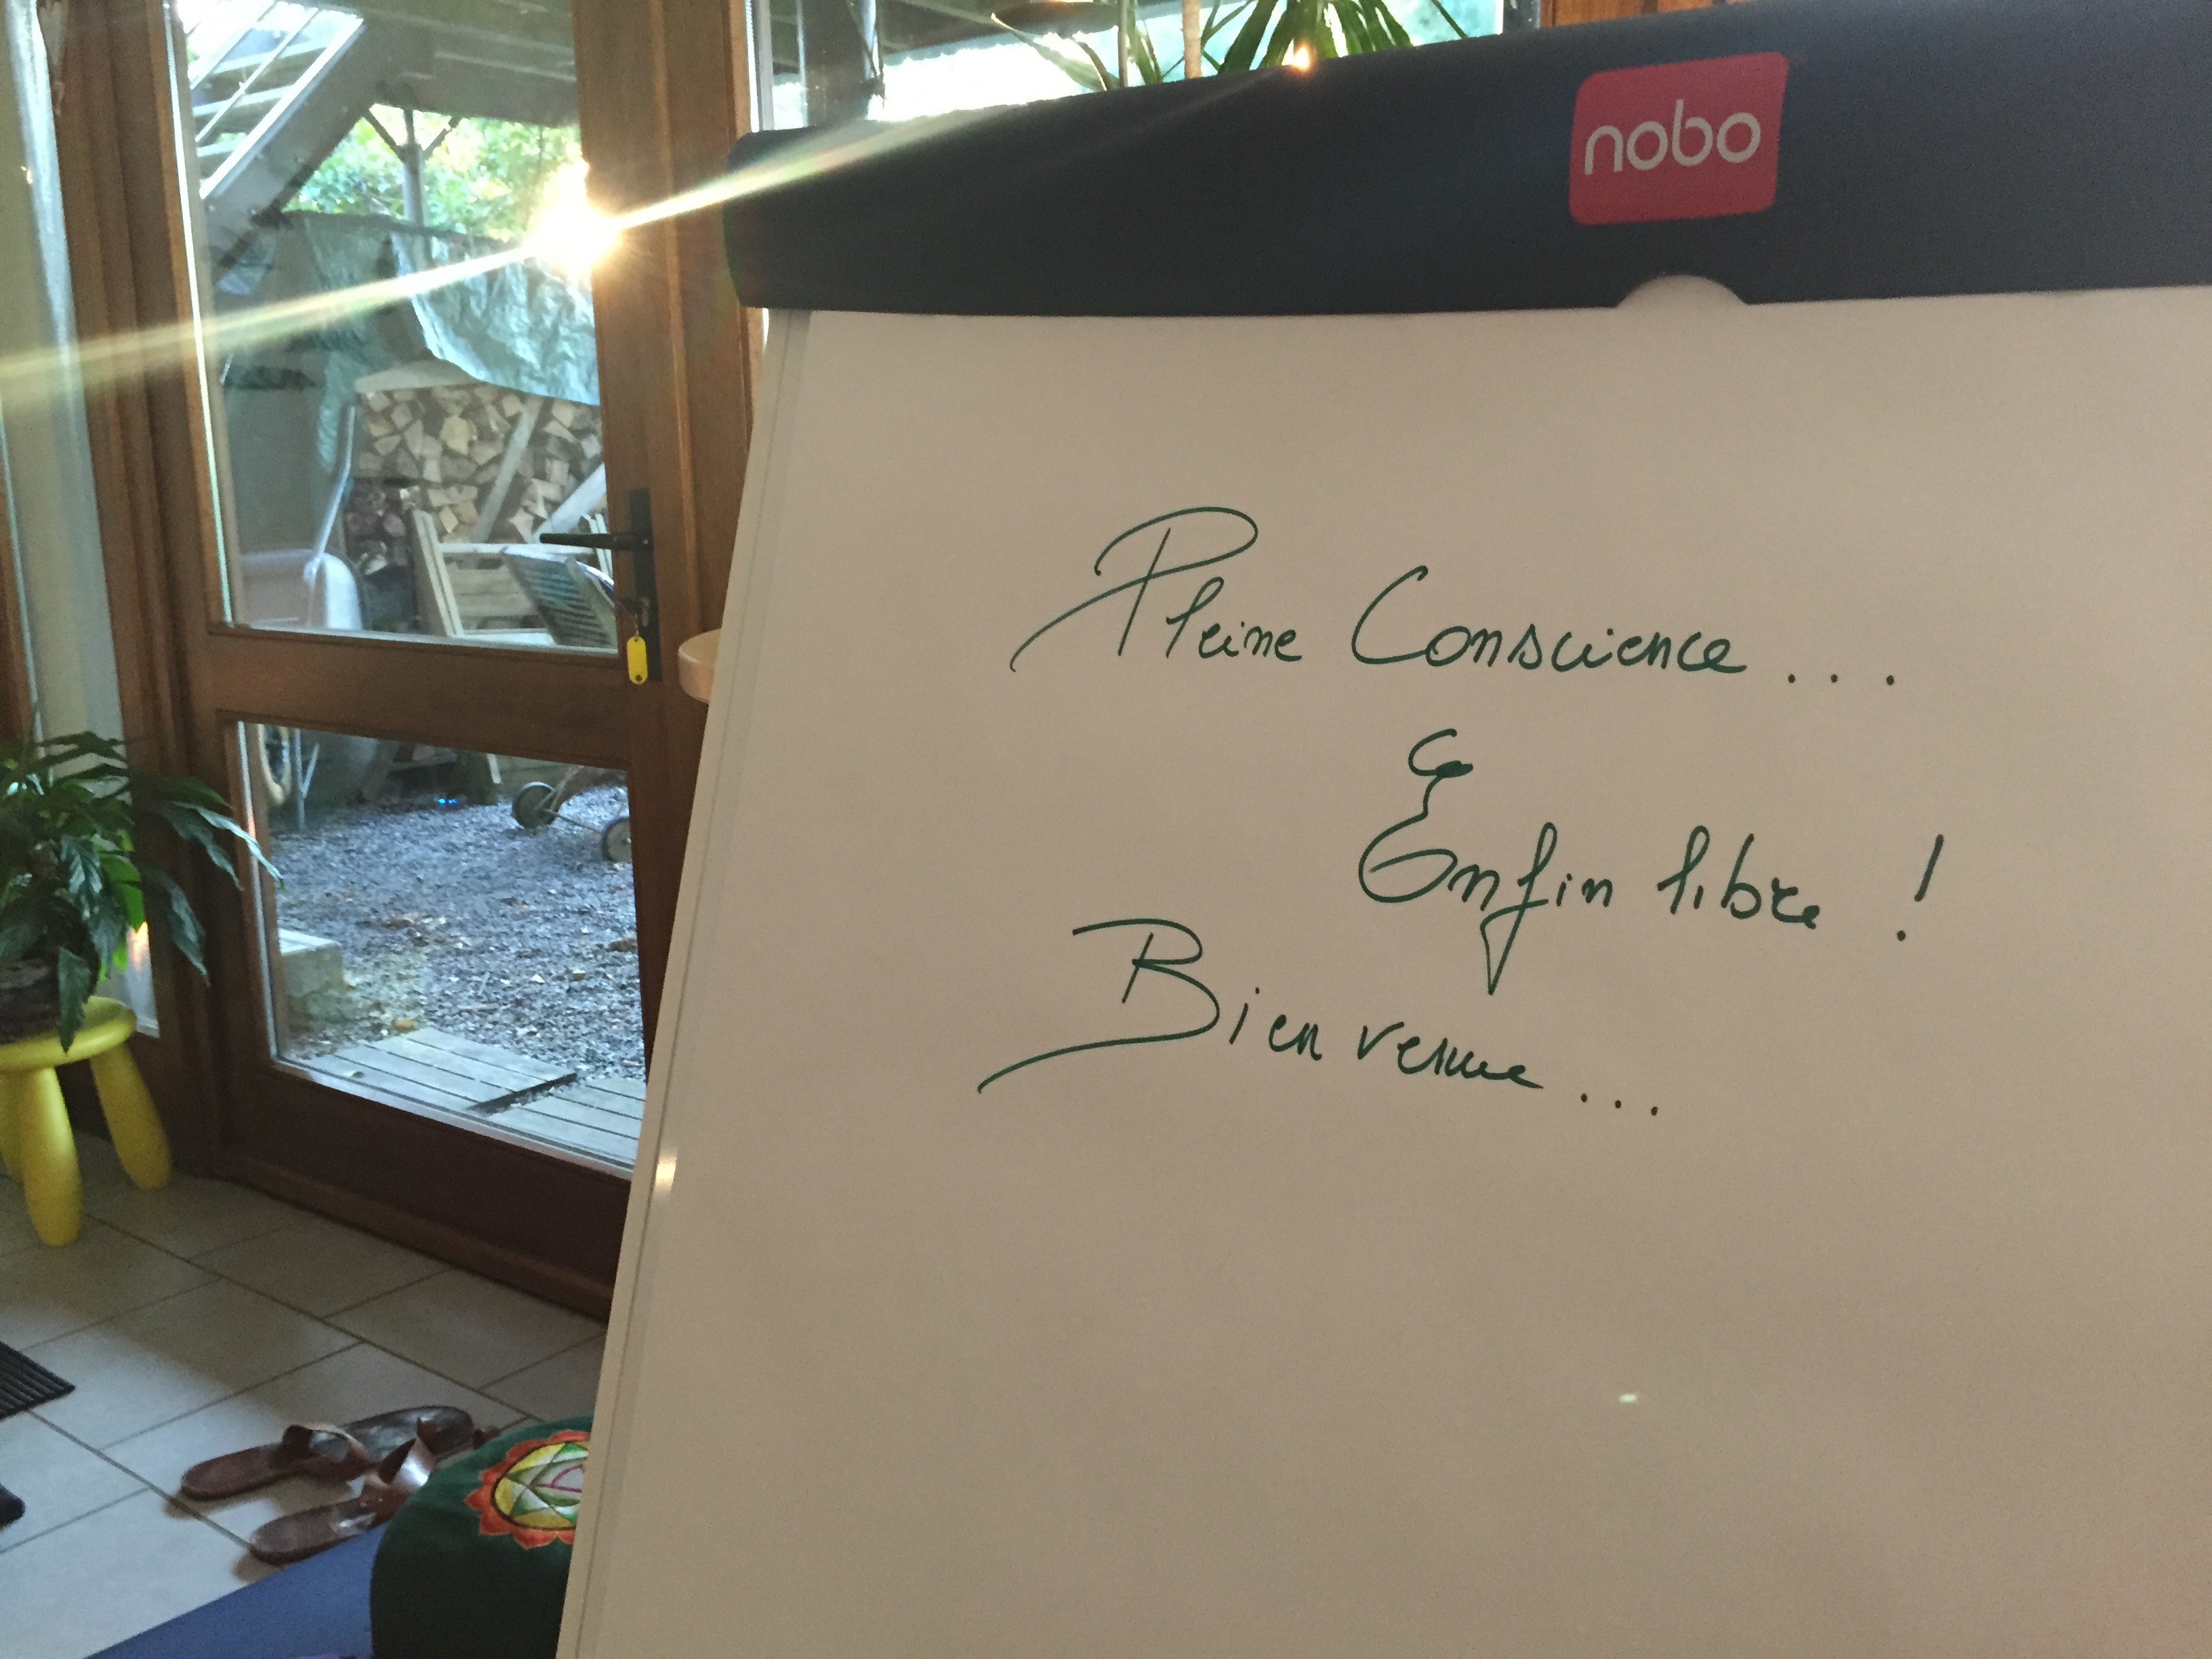 nobo
Pleine Conscience ...
Enfin libre !
Bienvenue ...